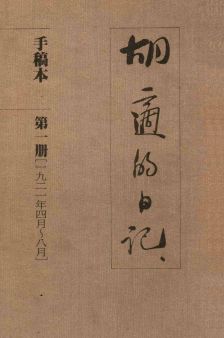 胡適的日記
手稿本
第一册[一九二一年四月~八月]